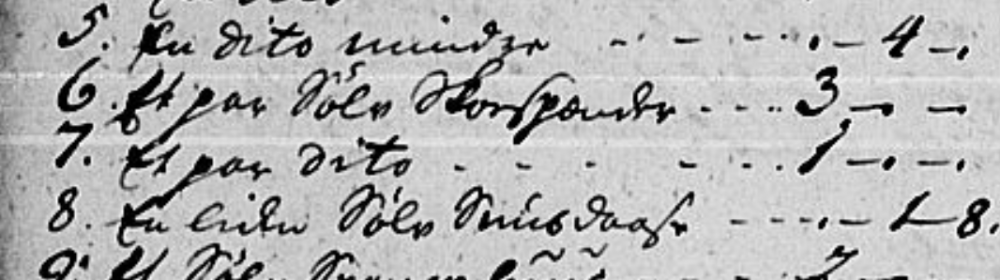 5. En dito mindre - - - - . - 4 - .
6. Et par Sölv Skoespænder - - - 3 - -
7. Et par dito - - - - - . 1 - . - .
8. En liden Sölv Snusdaase - - - . - 1 - 8.
9. Et Sölv